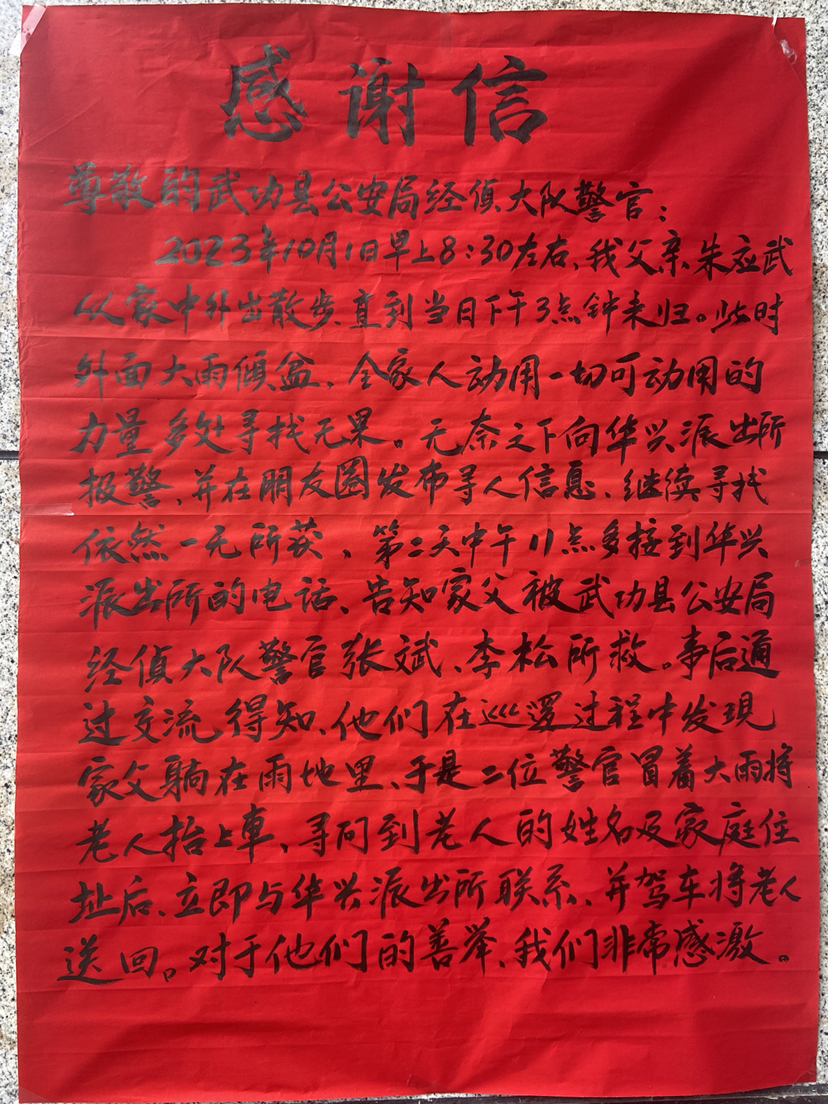 感谢信
尊敬的武功县公安局经侦大队警官：
2023年10月1日早上8:30左右、我父亲朱应武
从家中外出散步、直到当日下午3点钟未归。此时
外面大雨倾盆、全家人动用一切可动用的
力量多处寻找无果。无奈之下向华兴派出所
报警、并在朋友圈发布寻人信息、继续寻找
依然一无所获、第二天中午11点多接到华兴
派出所的电话、告知家父被武功县公安局
经侦大队警官张斌、李松所救。事后通
过交流得知、他们在巡逻过程中发现
家父躺在雨地里、于是二位警官冒着大雨将
老人抬上車、寻问到老人的姓名及家庭住
址后、立即与华兴派出所联系、并驾车将老人
送回。对于他们的善举、我们非常感激。